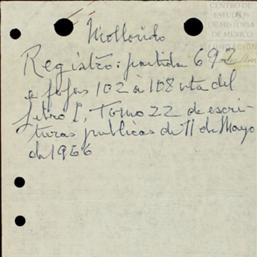 CENTRO DE
ESTUDIOS
DE HISTORIA
DE MEXICO
Registro: partida 692
a fojas 102 a 108 vta del
Libro I, Tomo 22 de escri-
turas publicas de 11 de Mayo
de 1966